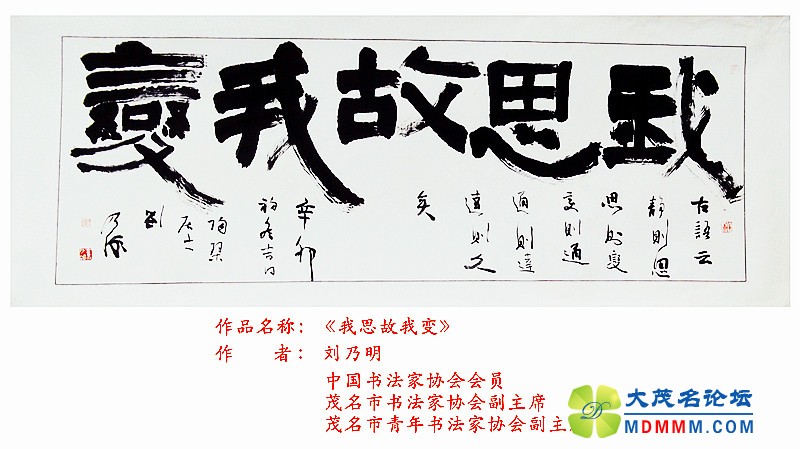 我思故我變
古語云
静則思
思則變
變則通
通則達
達則久
矣
辛卯
初冬吉日
劉
乃明
作品名称：《我思故我变》
作　　者：刘乃明
中国书法家协会会员
茂名市书法家协会副主席
茂名市青年书法家协会副主
大茂名论坛
MDMMM.COM